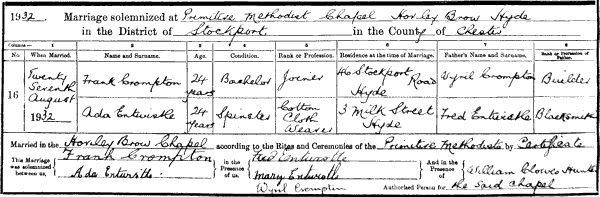 1932 Marriage solemnized at Primitive Methodist Chapel Hoviley Brow Hyde
in the District of Stockport in the County of Chester
Columns:— 1 2 3 4 5 6 7 8
No. When Married. Name and Surname. Age. Condition. Rank or Profession. Residence at the time of Marriage. Father's Name and Surname. Rank or Profession of Father.
16 Twenty Seventh August 1932
Frank Crompton 24 years Bachelor Joiner 46 Stockport Road Hyde Wyril Crompton Builder
Ada Entwistle 24 years Spinster Cotton Cloth Weaver 3 Milk Street Hyde Fred Entwistle Blacksmith
Married in the Hoviley Brow Chapel according to the Rites and Ceremonies of the Primitive Methodists by Certificate
This Marriage was solemnized between us, Frank Crompton Ada Entwistle
in the Presence of us, Fred Entwistle Mary Entwistle Wyril Crompton
And in the Presence of William Clowes
Authorised Person for the said chapel